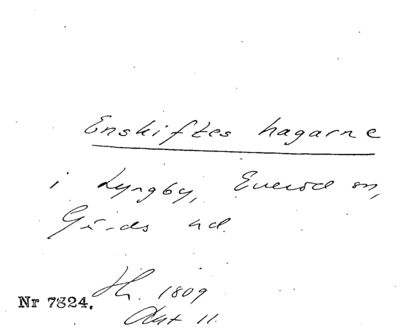 Enskiftes hagarne
i Lyngby, Everöd sn,
Gärds hd.
Hr. 1809
Nr 7324.
Akt 11.